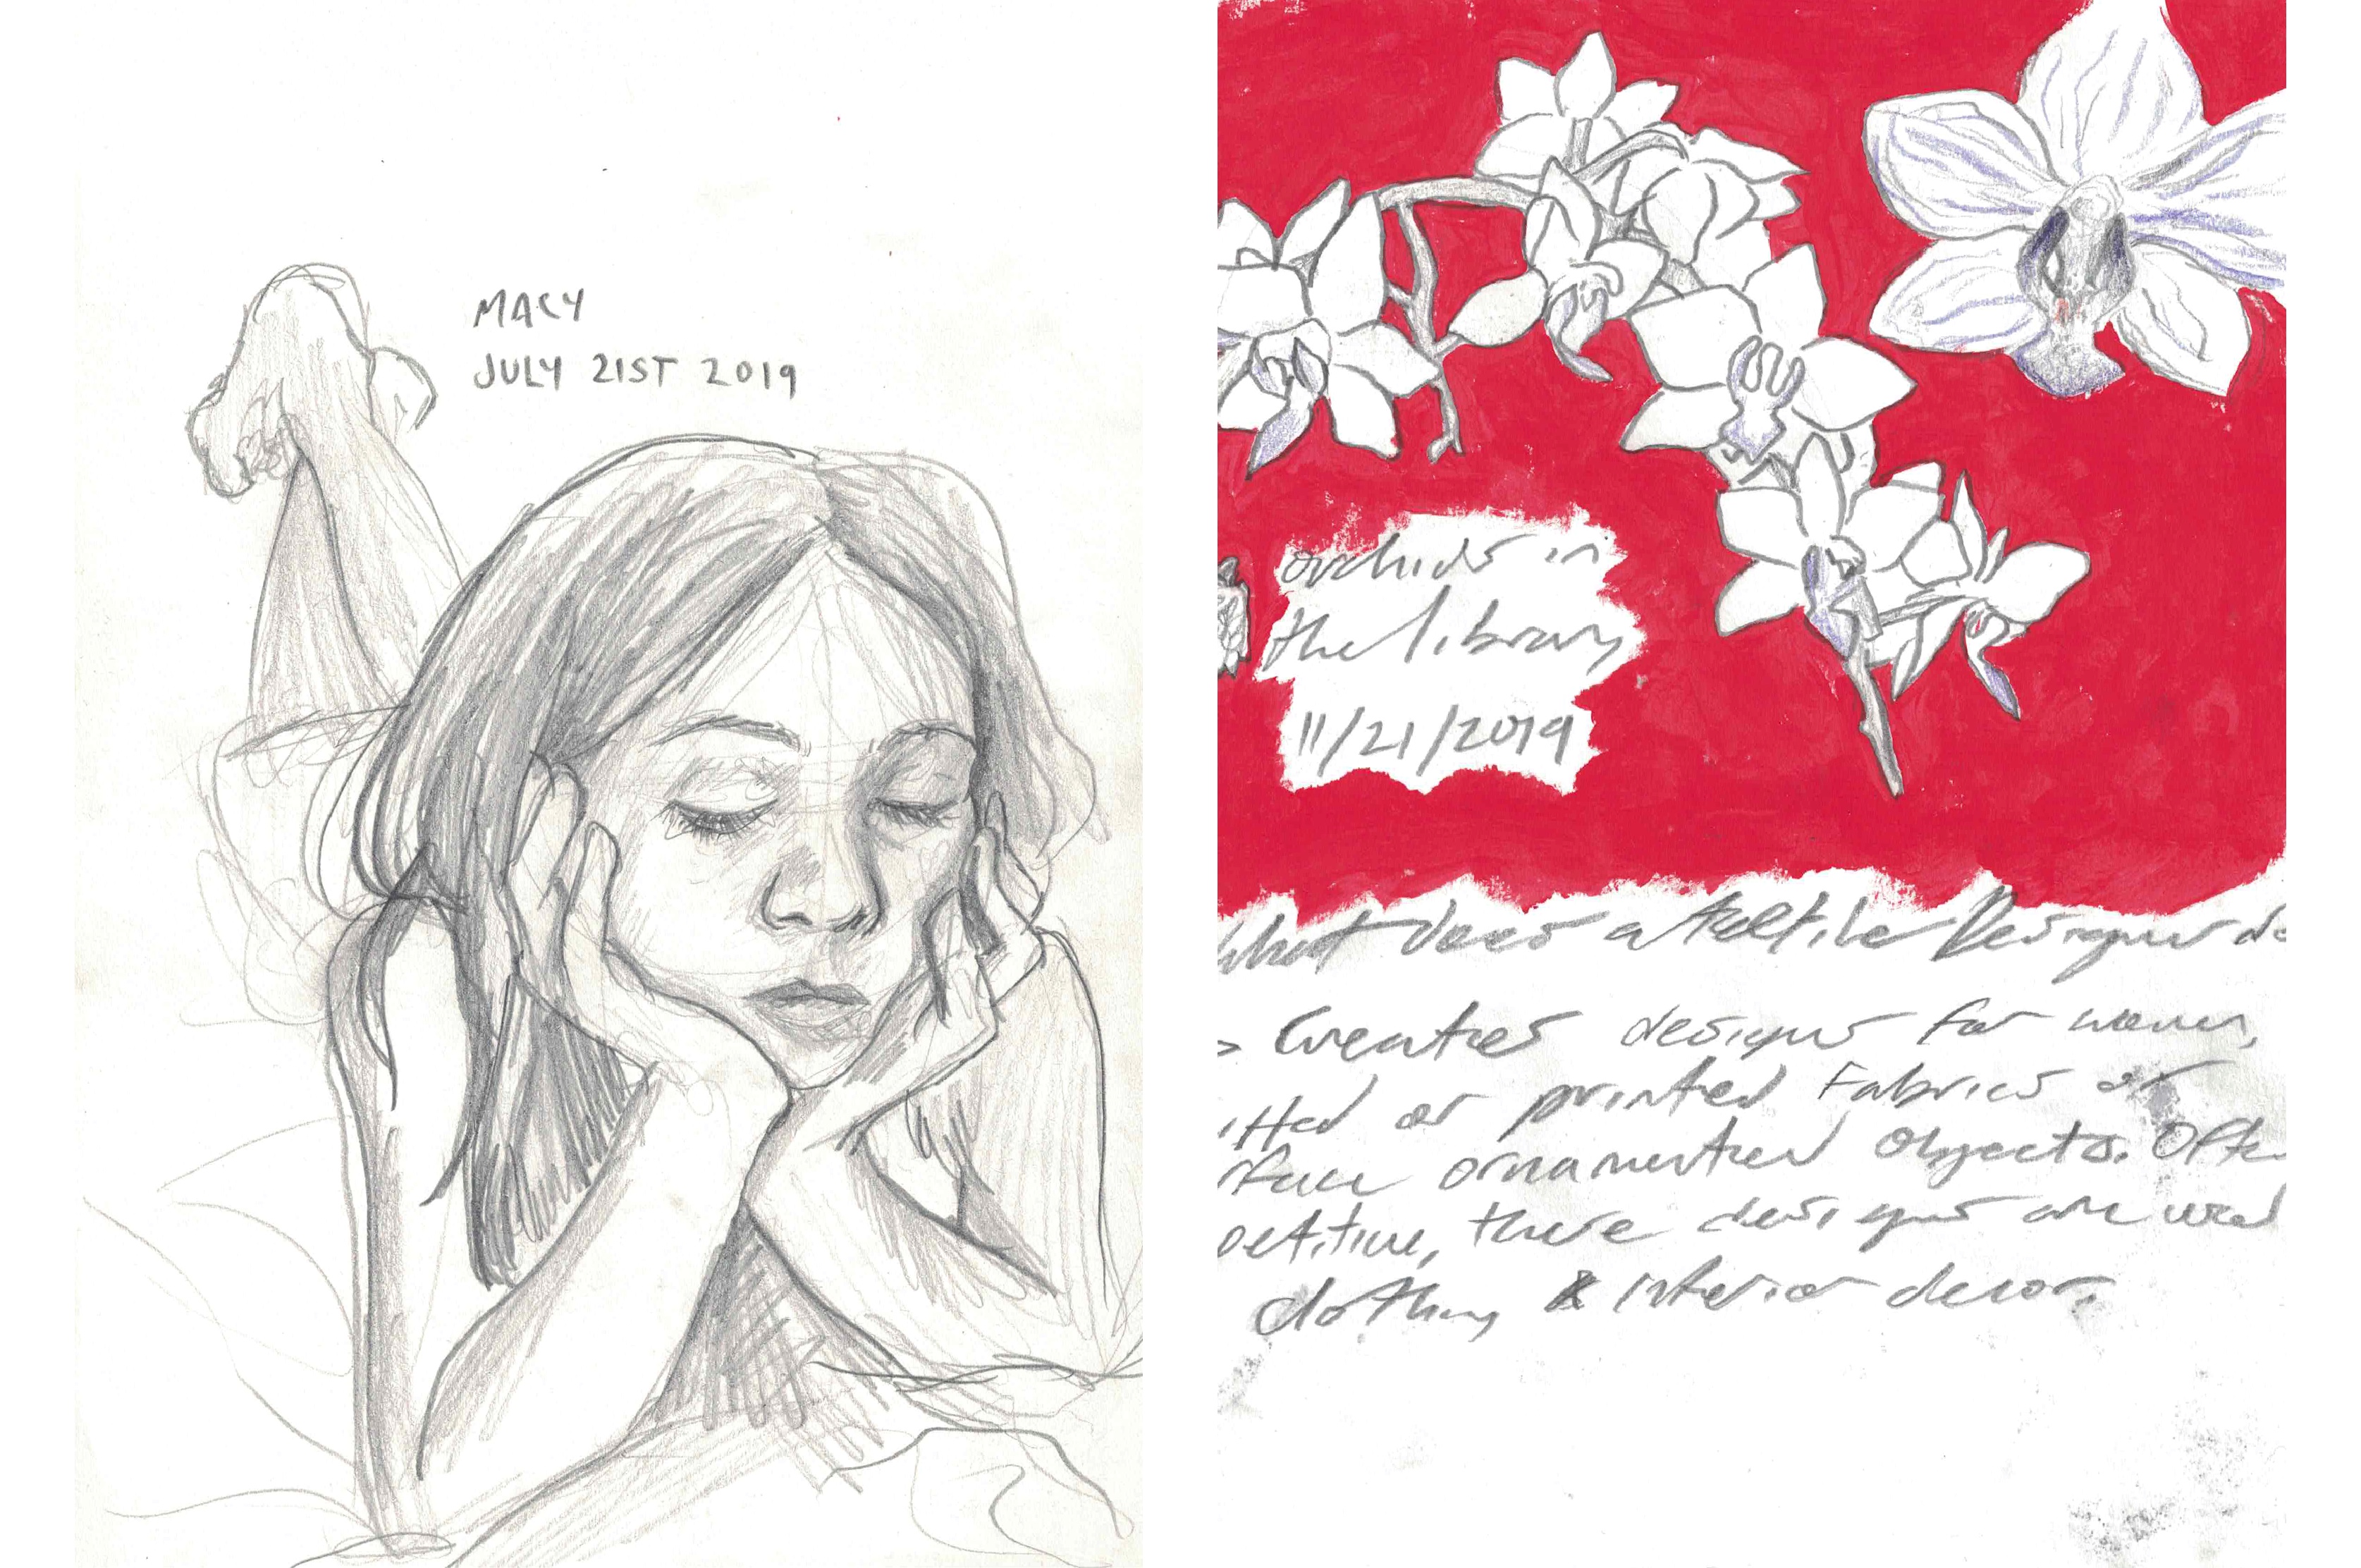 MACY
JULY 21ST 2019
orchids in
the library
11/21/2019
What does a textile Designer do
> Creates designs for woven,
itted or printed Fabrics or
rface ornamented Objects. Often
petitive, these designs are used
clothing & interior decor.